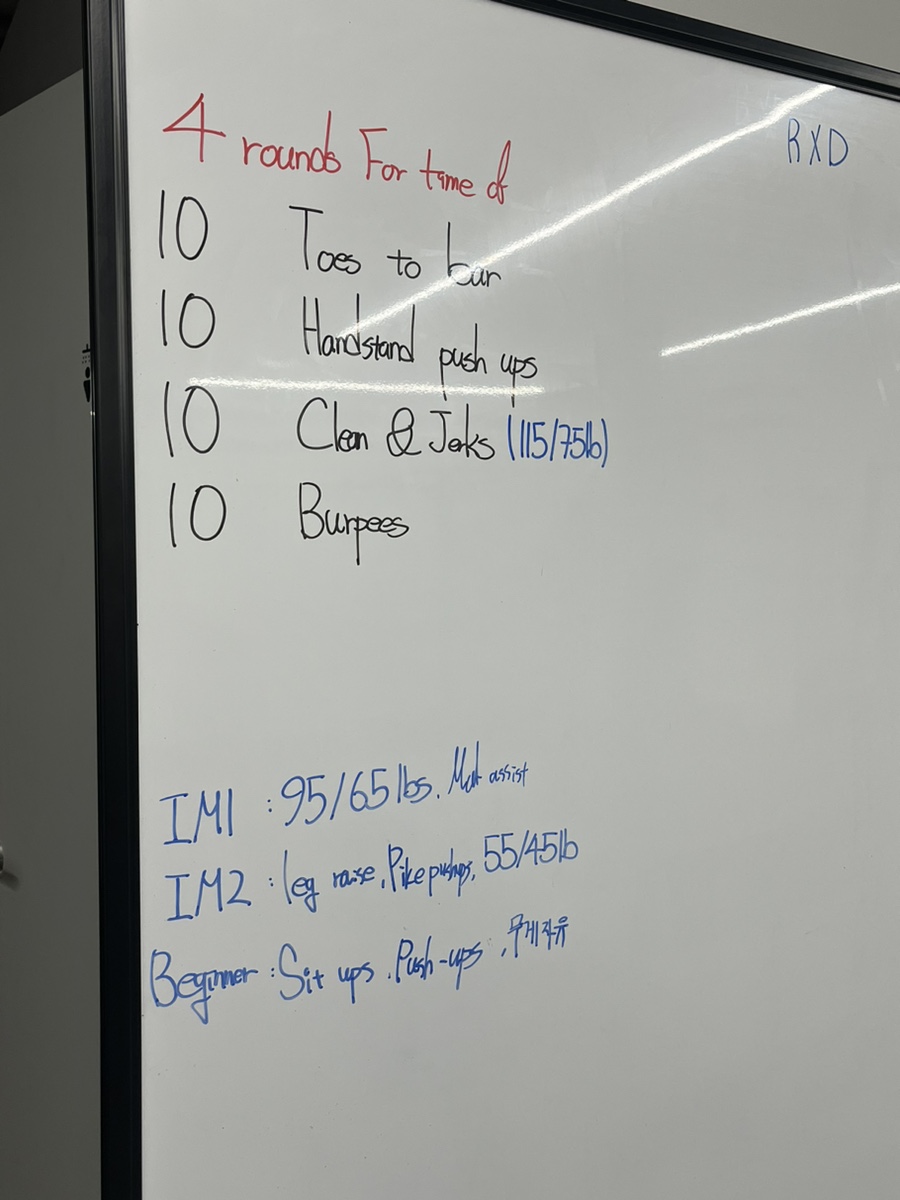 4 rounds For time of
RXD
10 Toes to bar
10 Handstand push ups
10 Clean & Jerks (115/75lb)
10 Burpees
IM1 : 95/65 lbs. Mat assist
IM2 : leg raise, Pike pushups, 55/45lb
Beginner : Sit ups, Push-ups, 무게자유